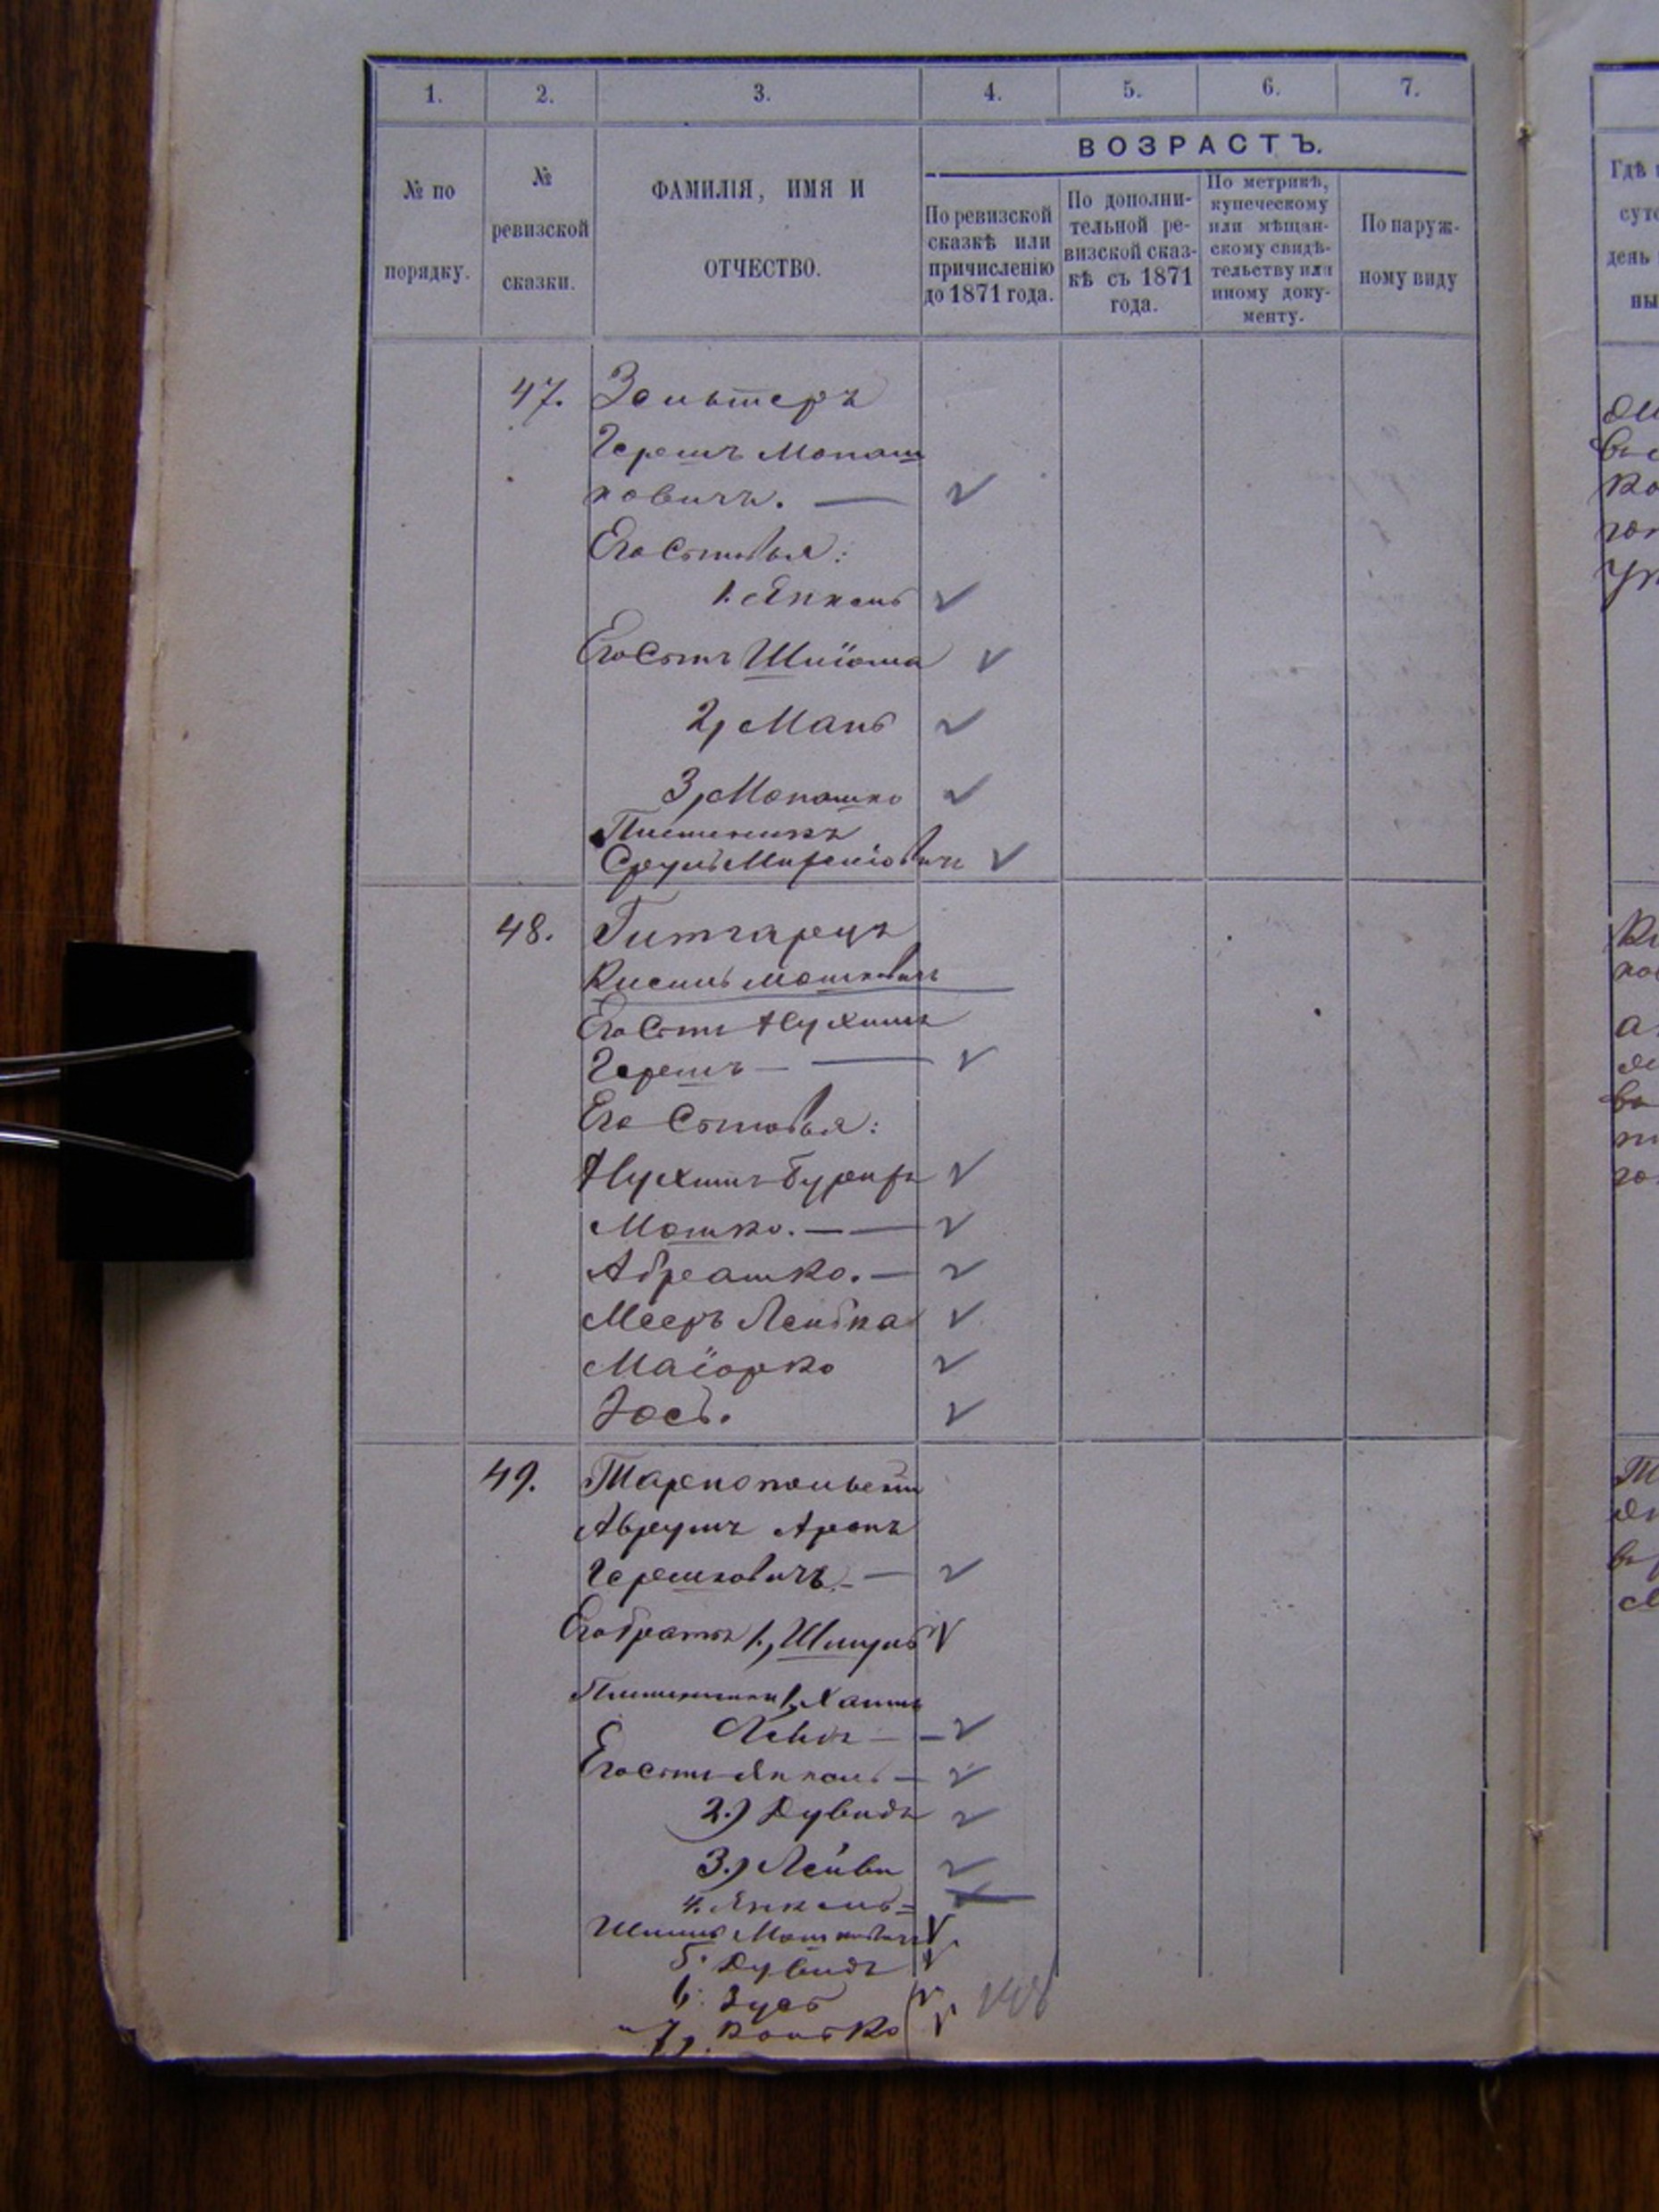 1. 2. 3. 4. 5. 6. 7.
№ по порядку.
№ ревизской сказки.
ФАМИЛІЯ, ИМЯ И
ОТЧЕСТВО.
ВОЗРАСТЪ.
По ревизской
сказкѣ или
причисленію
до 1871 года.
По дополни-
тельной ре-
визской сказ-
кѣ съ 1871
года.
По метрикѣ,
купеческому
или мѣщан-
скому свидѣ-
тельству или
иному доку-
менту.
По наруж-
ному виду
Гдѣ
день
47. Зельтеръ
Гершъ Монаш
ковичъ. —
Его Сыновья:
1. Янкель
Его Сынъ Шліома
2, Мань
3, Монашко
Племеникъ
Сруль
48. Гитгарцъ
Кисиль Мошковичъ
Его Сынъ Нухимъ
Гершъ — —
Его Сыновья:
Нухимъ
Мошко. — —
Абрашко. —
Мееръ Лейбка
Маіорко
Зось.
49. Тарнопольскій
Аврумъ Аронъ
Гершковичъ. —
Его братья 1, Шмуль
Племянники 1, Хаимъ
Лейбъ — —
Его сынъ Янкель —
2.) Дувидъ
3.) Лейви
4. Янкель =
Мошковичъ
5. Дувидъ
6. Зусь
7,
148